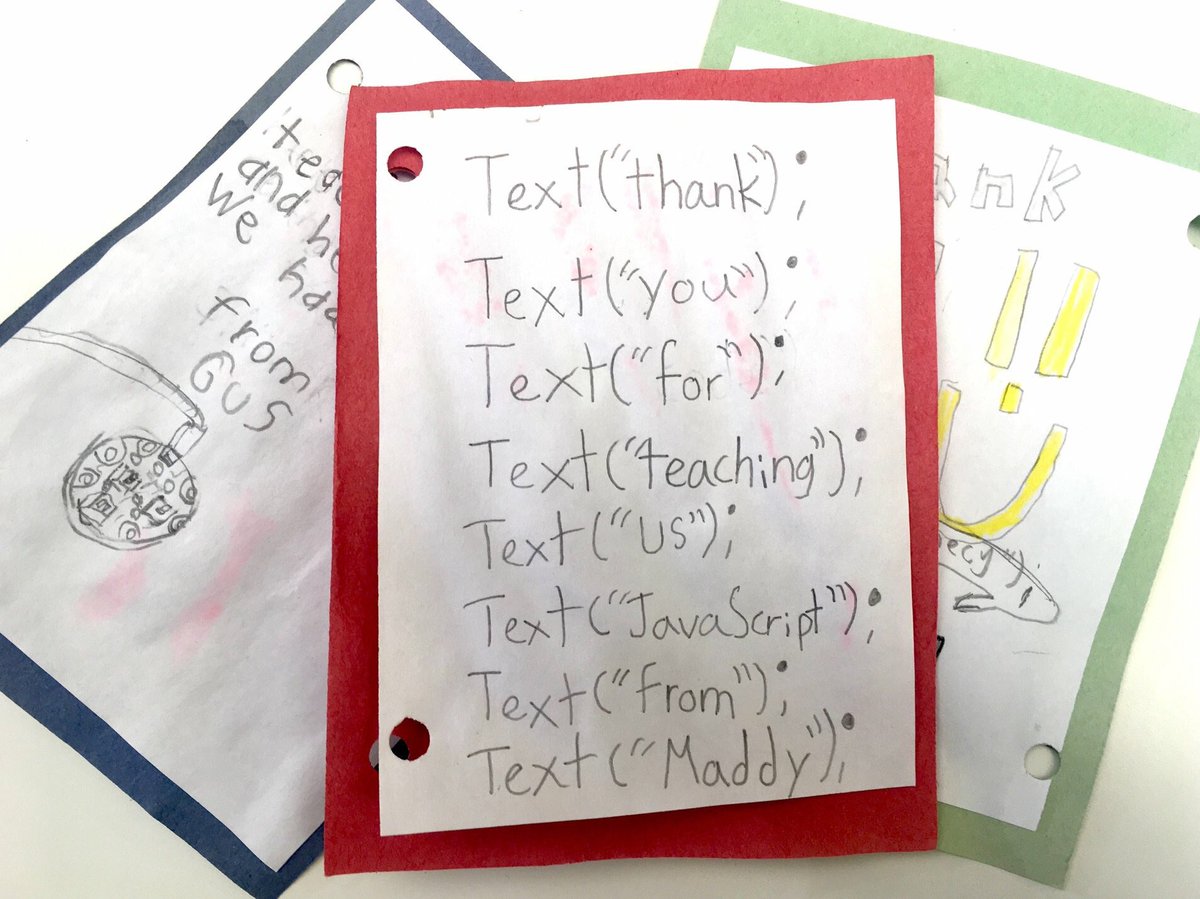 and
We
from
GUS
Text("thank");
Text("you");
Text("for");
Text("teaching");
Text("US");
Text("JavaScript");
Text("from");
Text("Maddy");